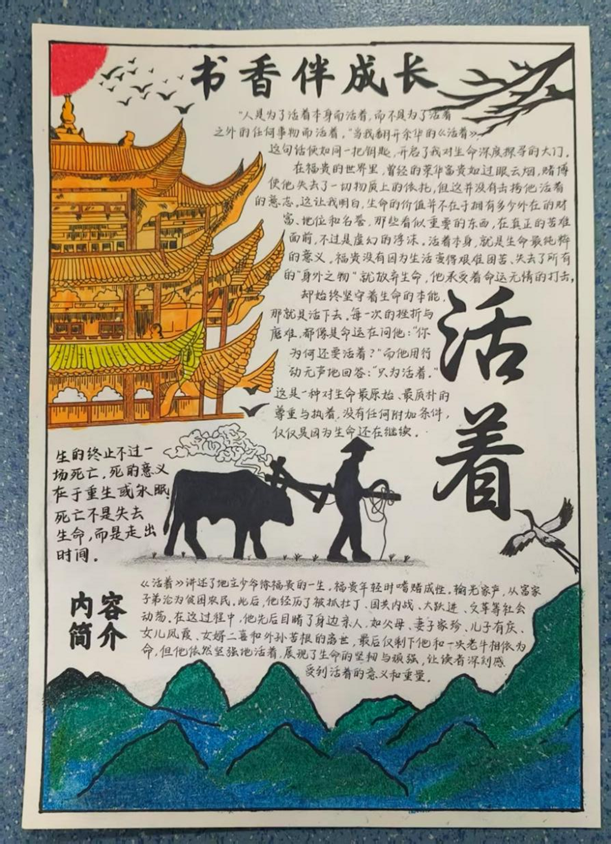 书香伴成长
"人是为了活着本身而活着,而不是为了活着
之外的任何事物而活着。"当我翻开余华的《活着》,
这句话便如同一把钥匙,开启了我对生命深度探寻的大门。
在福贵的世界里,曾经的荣华富贵如过眼云烟,赌博
使他失去了一切物质上的依托,但这并没有击垮他活着
的意志。这让我明白,生命的价值并不在于拥有多少外在的财
富、地位和名誉,那些看似重要的东西,在真正的苦难
面前,不过是虚幻的浮沫。活着本身,就是生命最纯粹
的意义。福贵没有因为生活变得艰难困苦、失去了所有
的"身外之物"就放弃生命,他承受着命运无情的打击,
却始终坚守着生命的本能,
那就是活下去。每一次的挫折与
磨难,都像是命运在问他:"你
为何还要活着?"而他用行
动无声地回答:"只为活着。"
这是一种对生命最原始、最质朴的
尊重与执着,没有任何附加条件,
仅仅是因为生命还在继续。
活着
生的终止不过一
场死亡,死的意义
在于重生或永眠
死亡不是失去
生命,而是走出
时间。
内容
简介
《活着》讲述了地主少爷徐福贵的一生。福贵年轻时嗜赌成性,输光家产,从富家
子弟沦为贫困农民。此后,他经历了被抓壮丁、国共内战、大跃进、文革等社会
动荡。在这过程中,他先后目睹了身边亲人,如父母、妻子家珍、儿子有庆、
女儿凤霞、女婿二喜和外孙苦根的离世,最后仅剩下他和一头老牛相依为
命。但他依然坚强地活着,展现了生命的坚韧与顽强,让读者深刻感
受到活着的意义和重量。